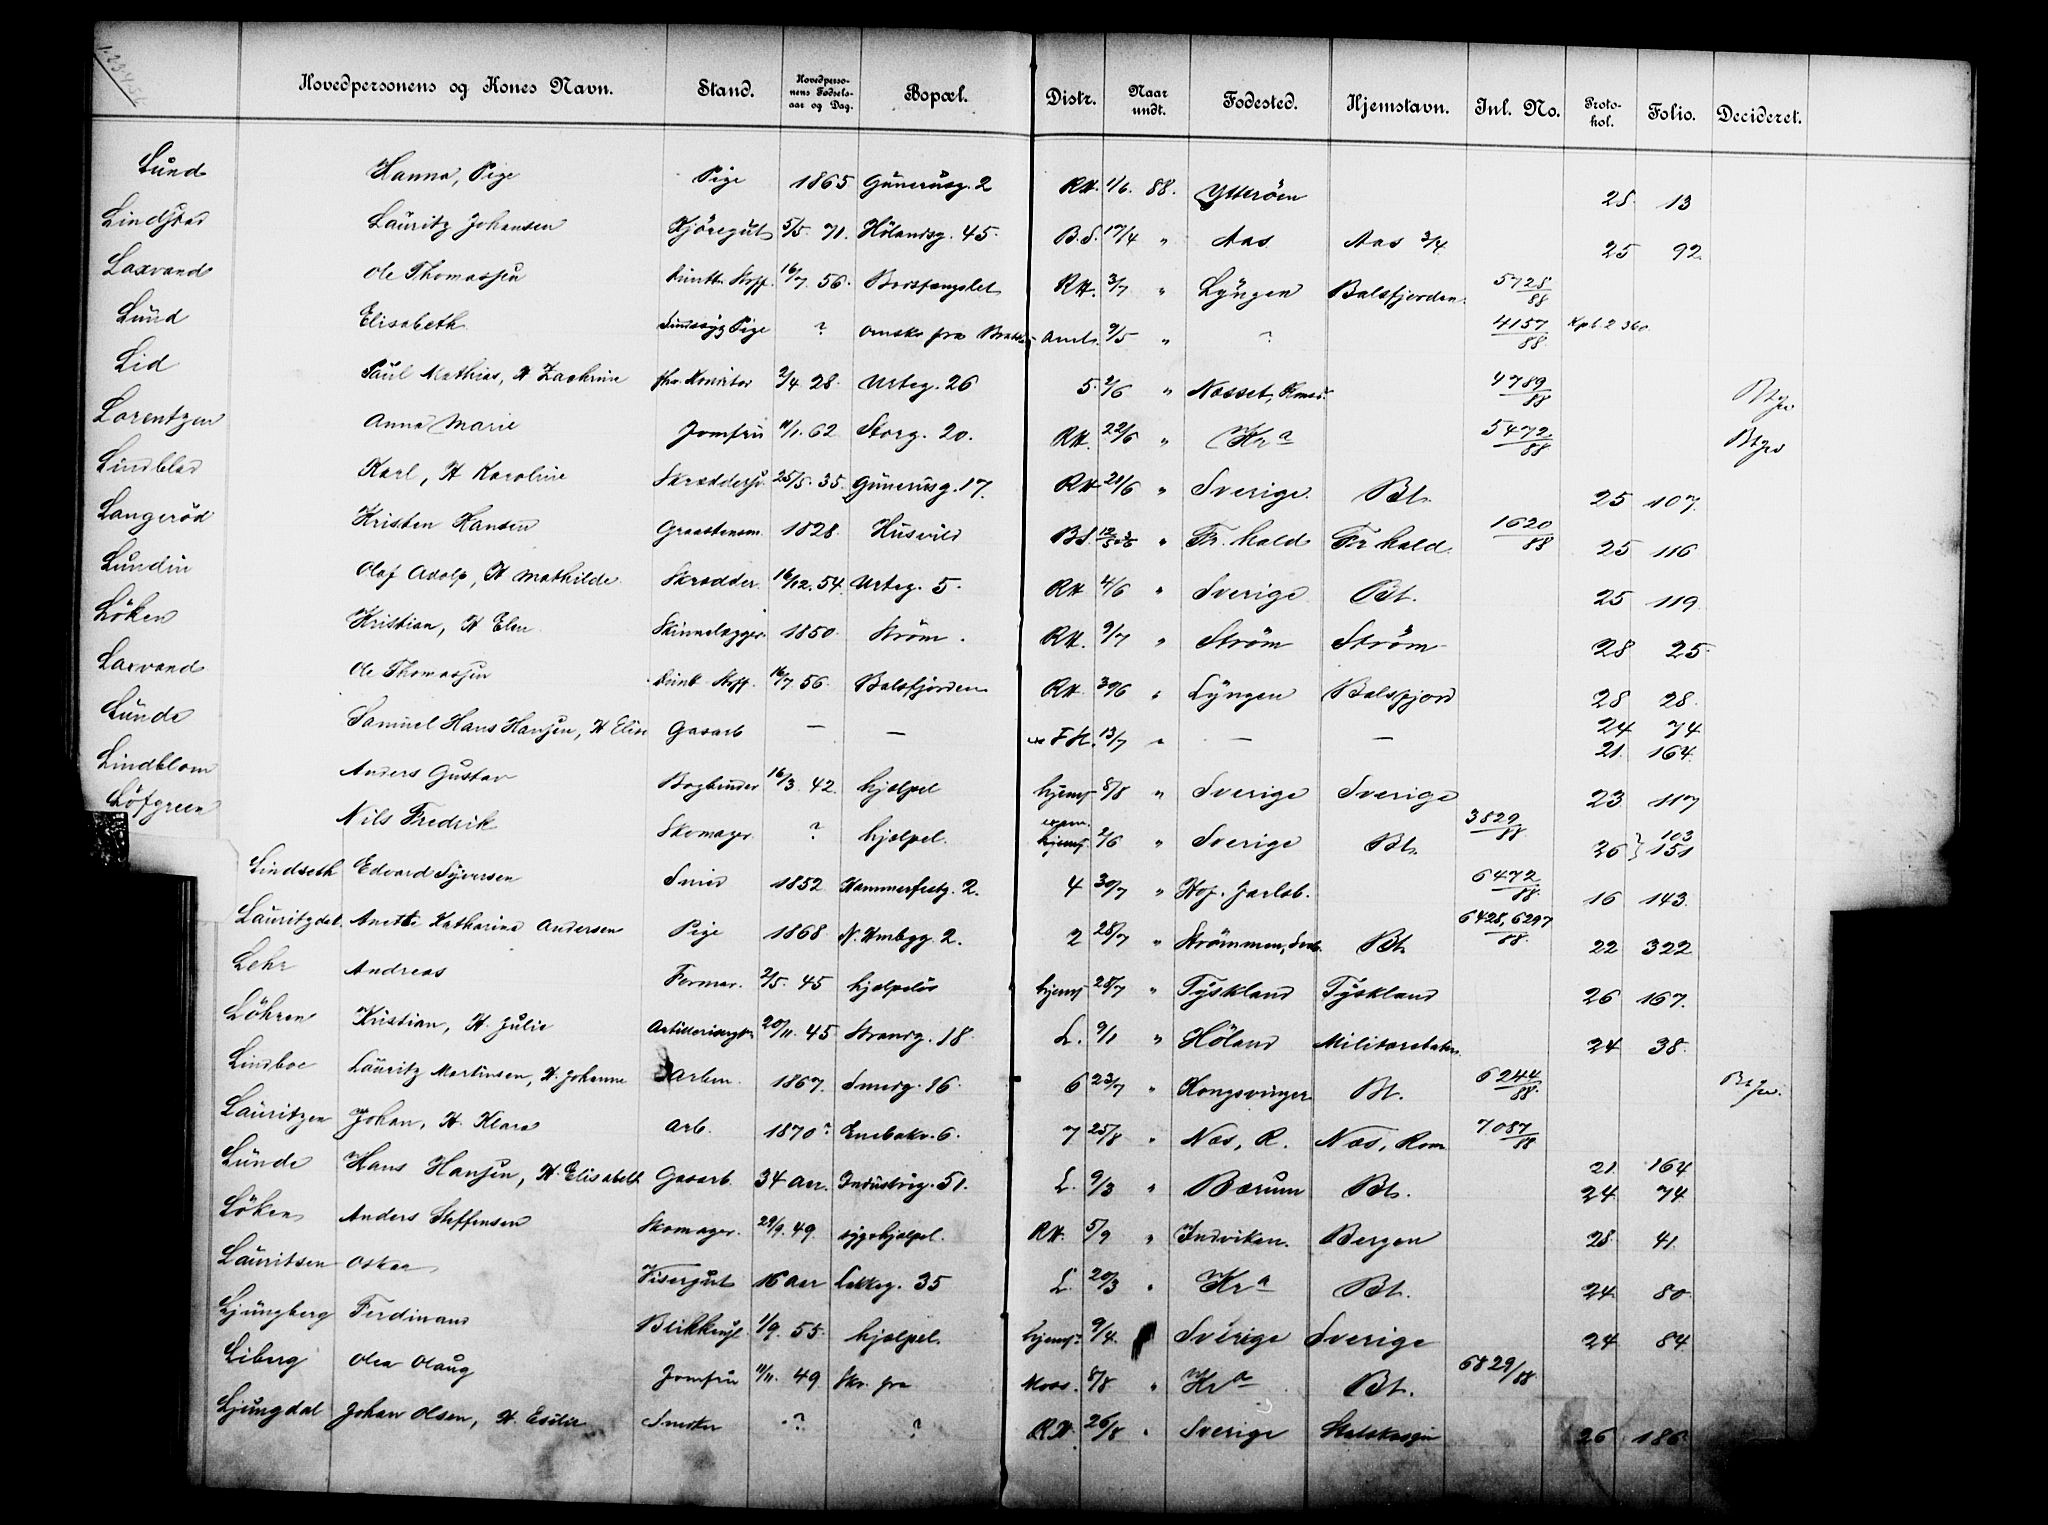 Hovedpersonens og Kones Navn. Stand. Hovedpersonens Fødselsaar og Dag. Bopæl. Distr. Naar undt. Fødested. Hjemstavn. Inl. No. Protokol. Folio. Decideret.
Lund Hanna, Pige Pige 1865 Gunerusg. 2 RH. 1/6. 88. Ytterøen 28 13
Lauritz Johansen Kjøregut 5/5. 71. Hølandsg. 45. B.S. 17/4 " Aas Aas 3/4. 25 92
Laxvand Ole Thomassen 16/7 56. Bodsfængslet RH. 3/7 " Lyngen Balsfjorden 5728/88
Lund Elisabeth Sindssyg Pige ? Amts. 9/5 " ? 4157/88
Lid Paul Mathias, H Zachrine 2/4 28. Urteg. 26 5. 2/6 " Næsset, 4789/88
Lorentzen Anna Marie Jomfru 11/1. 62 Storg. 20. RH. 22/6 " Kr a 5472/88
Lindblad Karl, H Karoline 25/5. 35. Gunerusg. 17. RH. 21/6 " Sverige. Bt. 25 107.
Langerød Kristen Hansen 1828. Husvild BS. " Fr. hald Fr hald 1620/88 25 116
Lundin Olaf Adolp, H Mathilde Skrædder. 16/12. 54. Urteg. 5. RH 4/6 " Sverige Bt. 25 119.
Løken Kristian, H Elen Skinnelægger. 1850. Strøm. RH. 9/7 " Strøm Strøm 28 25.
Laxvand Ole Thomassen 16/7 56. Balsfjorden RH. 30/6 " Lyngen Balsfjord 28 28.
Lunde Samuel Hans Hansen, H Elise Gasarb — — F.H. 13/7 " — — 24 74
21. 164.
Lindblom Anders Gustav Bogbinder 16/3 42. hjælpel hjemf 8/8 " Sverige Sverige 23 117
Löfgreen Nils Fredrik Skomager. ? hjælpel. hjemf. 2/6 " Sverige Bt. 3829/88 26 103
151
Lindseth Edvard Syversen Smed 1852 Hammerfestg. 2. 4 30/7 " Hof. Jarlsb. 6472/88. 16 143.
Lauritzdat. Anette Katharina Andersen Pige 1868. N. 2. 2 28/7 " Strømmen, Bt. 6428, 6297/88. 22 322
Lehr Andreas Former. 2/5. 45 hjælpeløs hjemf 28/7 " Tyskland Tyskland 26 167.
Løhren Kristian, H. Julie 20/11. 45 Strandg. 18 L. 9/1 " Høland 24 38.
Lindboe Lauritz Martinsen, H. Johanne 1867. Smedg. 16. 6 23/7 " Kongsvinger Bt. 6244/88.
Lauritzen Johan, H. Klara Arb. 1870? Enebakv. 6. 7 25/8 " Næs, R. Næs, Rom 7087/88
Lunde Hans Hansen, H. Elisabeth Gasarb. 34 Aar. Industrig. 51. L. 9/3 " Bærum Bt. 21. 164
24 74
Løken Anders Steffensen Skomager. 29/9. 49. sygehjælpel. RH. 5/9 " Indviken. Bergen 28. 41.
Lauritsen Oskar Visergut 16 Aar Lakkeg. 35 L. 20/3 " Kr a Bt. 24. 80.
Ljungberg Ferdinand 1/9. 55. hjælpel. hjemf. 9/4. Sverige Sverige 24 84.
Liberg Olea Olaug Jomfru 11/11. 49. Skr. fra Moss. 8/8 " Kr a Bt. 6829/88
Ljungdal Johan Olsen, H. ? ? RH. 26/8 " Sverige 26 186.